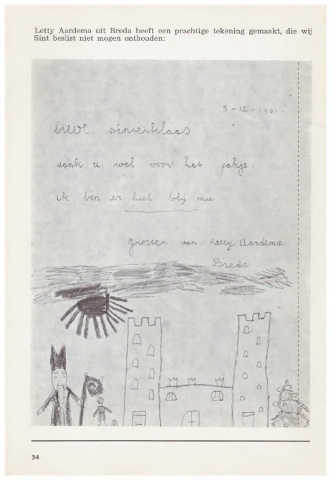 Letty Aardema uit Breda heeft een prachtige tekening gemaakt, die wij
Sint beslist niet mogen onthouden:
5-12-1961
lieve sinterklaas
dank u wel voor het pakje.
ik ben er heel blij mee
groeten van Letty Aardema
Breda
34